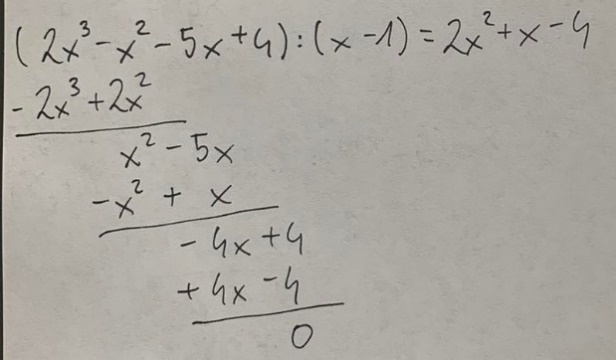 (2x³ - x² - 5x + 4) : (x - 1) = 2x² + x - 4
- 2x³ + 2x²
x² - 5x
- x² + x
- 4x + 4
+ 4x - 4
0